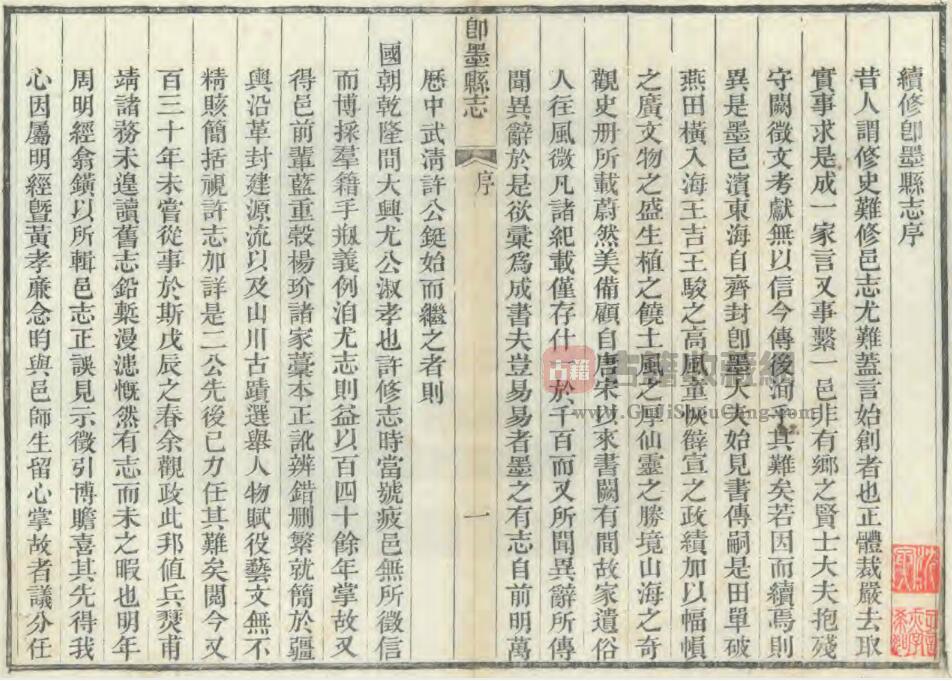 續修卽墨縣志序
昔人謂修史難修邑志尤難蓋言始創者也正體裁嚴去取
實事求是成一家言又事繫一邑非有鄉之賢士大夫抱殘
守闕徵文考獻無以信今傳後洵乎其難矣若因而續焉則
異是墨邑濱東海自齊封卽墨大夫始見書傳嗣是田單破
燕田橫入海王吉王駿之高風童恢薛宣之政績加以幅幀
之廣文物之盛生植之饒土風之厚仙靈之勝境山海之奇
觀史册所載蔚然美備顧自唐宋以來書闕有間故家遺俗
人往風微凡諸紀載僅存什一於千百而又所聞異辭所傳
聞異辭於是欲彙爲成書夫豈易易者墨之有志自前明萬
卽墨縣志
序
一
歷中武淸許公鋌始而繼之者則
國朝乾隆間大興尤公淑孝也許修志時當號疲邑無所徵信
而博採羣籍手剏義例洎尤志則益以百四十餘年掌故又
得邑前輩藍重穀楊玠諸家藁本正訛辨錯删繁就簡於疆
輿沿革封建源流以及山川古蹟選舉人物賦役藝文無不
精賅簡括視許志加詳是二公先後已力任其難矣閱今又
百三十年未嘗從事於斯戊辰之春余觀政此邦值兵燹甫
靖諸務未遑讀舊志鉛槧漫漶慨然有志而未之暇也明年
周明經翕鐄以所輯邑志正誤見示徵引博贍喜其先得我
心因屬明經曁黃孝廉念昀與邑師生留心掌故者議分任
古籍收藏網
www.GuJiShouCang.com
古籍